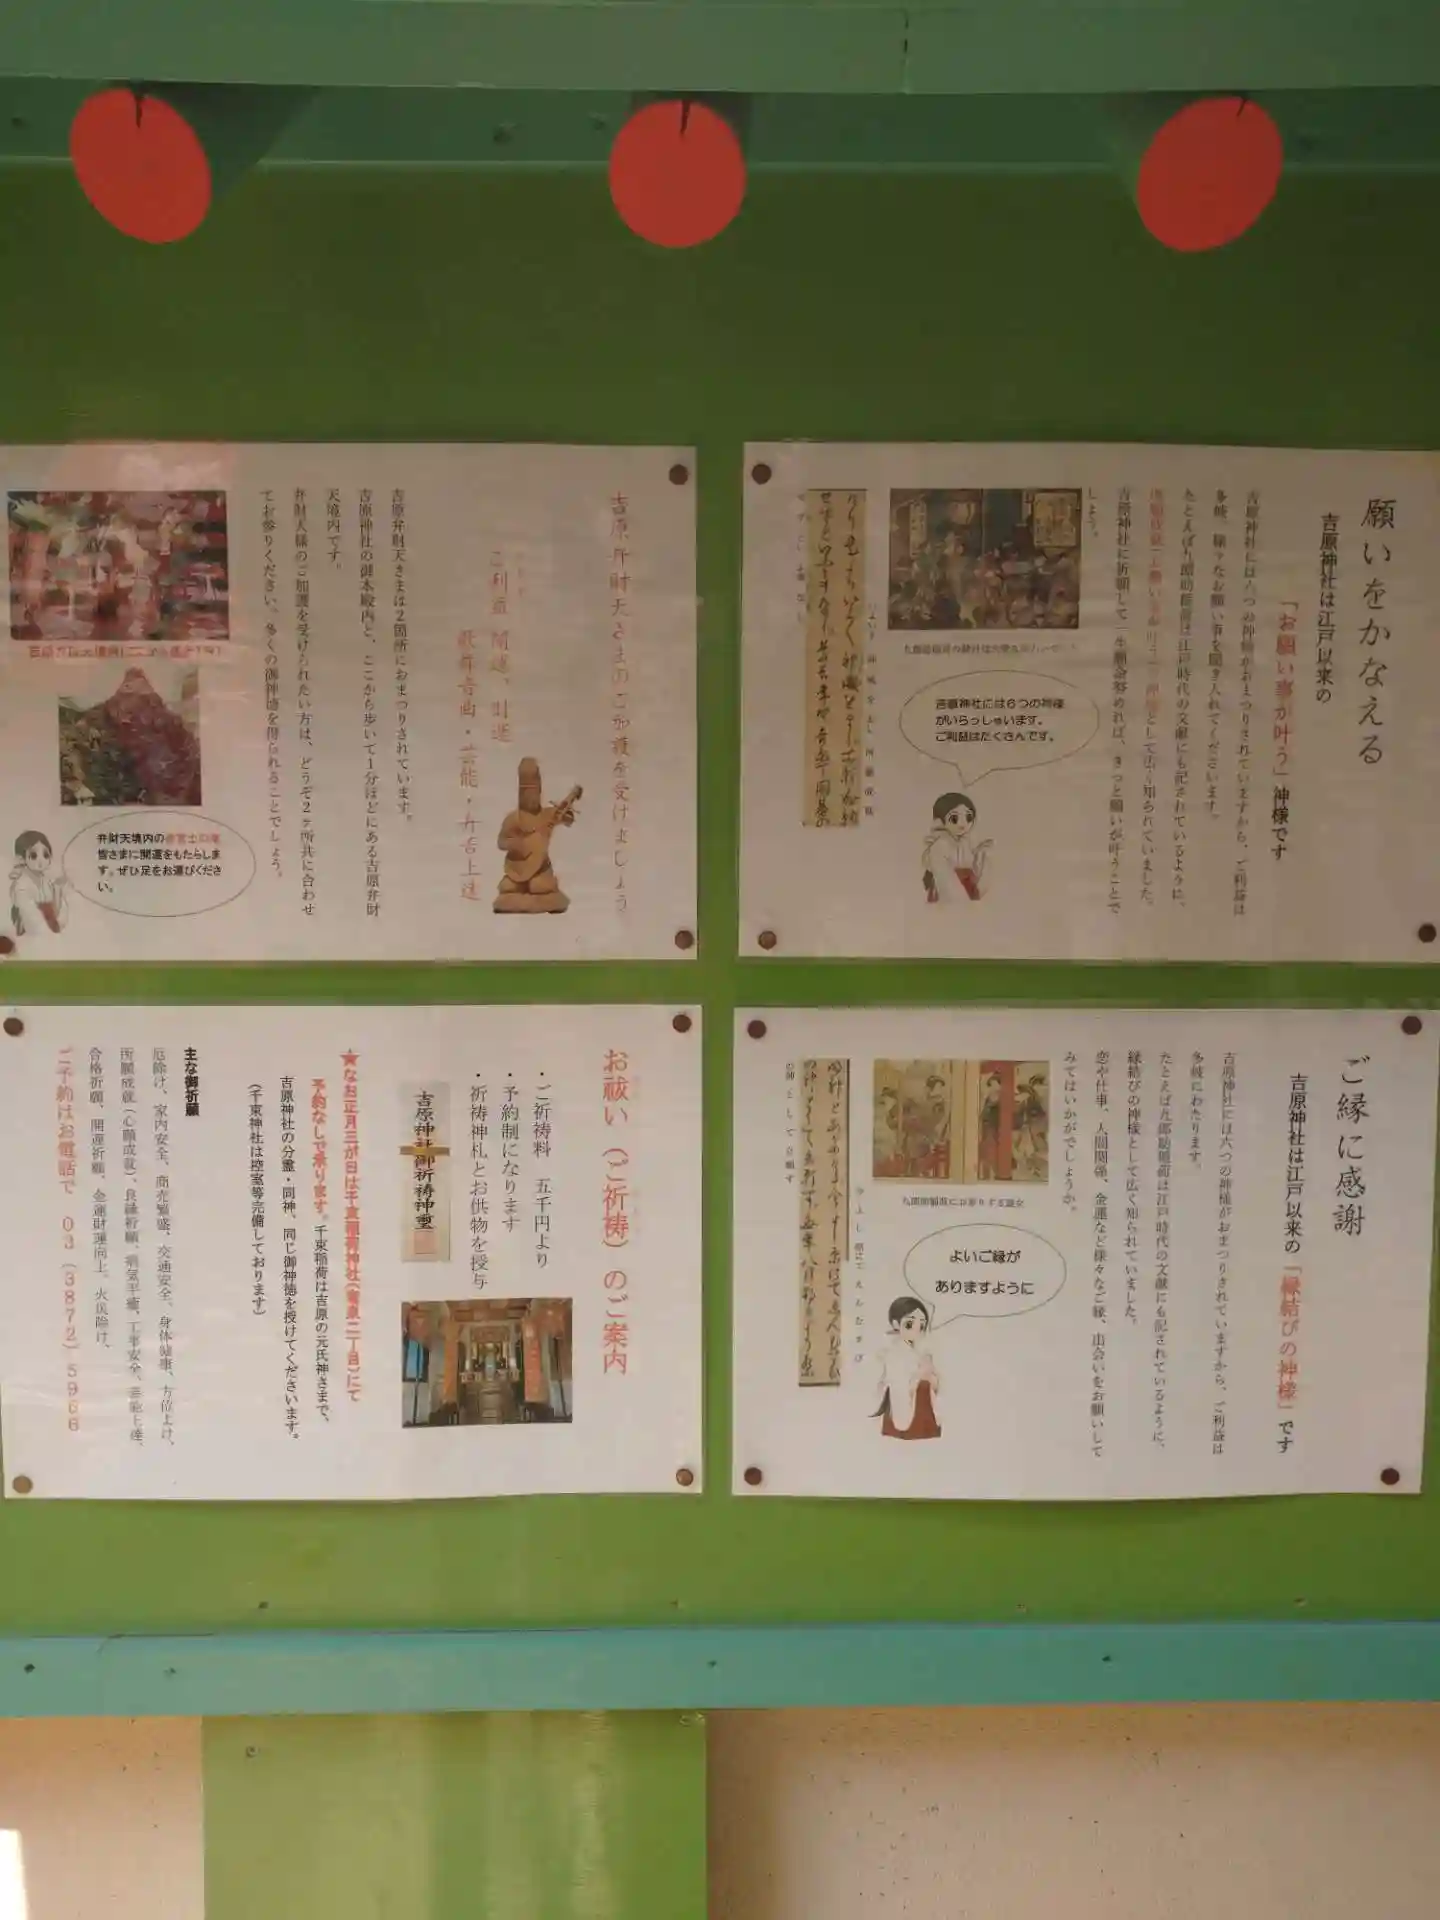 願いをかなえる
吉原神社は江戸以来の
「お願い事が叶う」神様です
吉原神社には六つの神様がおまつりされていますから、ご利益は
多岐、様々なお願い事を聞き入れてくださいます。
たとえば九郎助稲荷は江戸時代の文献にも記されているように、
として広く知られていました。
吉原神社に祈願して一生懸命努めれば、きっと願いが叶うことで
しょう。
吉原神社には６つの神様
がいらっしゃいます。
ご利益はたくさんです。
吉原弁財天さまのご加護を受けましょう
ご利益 開運、財運
歌舞音曲・芸能・弁舌上達
吉原弁財天さまは２箇所におまつりされています。
吉原神社の御本殿内と、ここから歩いて１分ほどにある吉原弁財
天境内です。
弁財天様のご加護を受けられたい方は、どうぞ２ヶ所共に合わせ
てお参りください。多くの御神徳を得られることでしょう。
弁財天境内の
皆さまに開運をもたらしま
す。ぜひ足をお運びくださ
い。
ご縁に感謝
吉原神社は江戸以来の「縁結びの神様」です
吉原神社には六つの神様がおまつりされていますから、ご利益は
多岐にわたります。
たとえば九郎助稲荷は江戸時代の文献にも記されているように、
縁結びの神様として広く知られていました。
恋や仕事、人間関係、金運など様々なご縁、出会いをお願いして
みてはいかがでしょうか。
九郎助稲荷にお参りする遊女
よいご縁が
ありますように
お祓い（ご祈祷）のご案内
・ご祈祷料 五千円より
・予約制になります
・祈祷神札とお供物を授与
吉原神社御祈祷神璽
★なお正月三が日は千束稲荷神社（竜泉二丁目）にて
予約なしで承ります。千束稲荷は吉原の元氏神さまで、
吉原神社の分霊・同神、同じ御神徳を授けてくださいます。
（千束神社は控室等完備しております）
主な御祈願
厄除け、家内安全、商売繁盛、交通安全、身体健康、方位よけ、
所願成就（心願成就）、良縁祈願、病気平癒、工事安全、芸能上達、
合格祈願、開運祈願、金運財運向上、火災除け、
ご予約はお電話で ０３（３８７２）５９６６